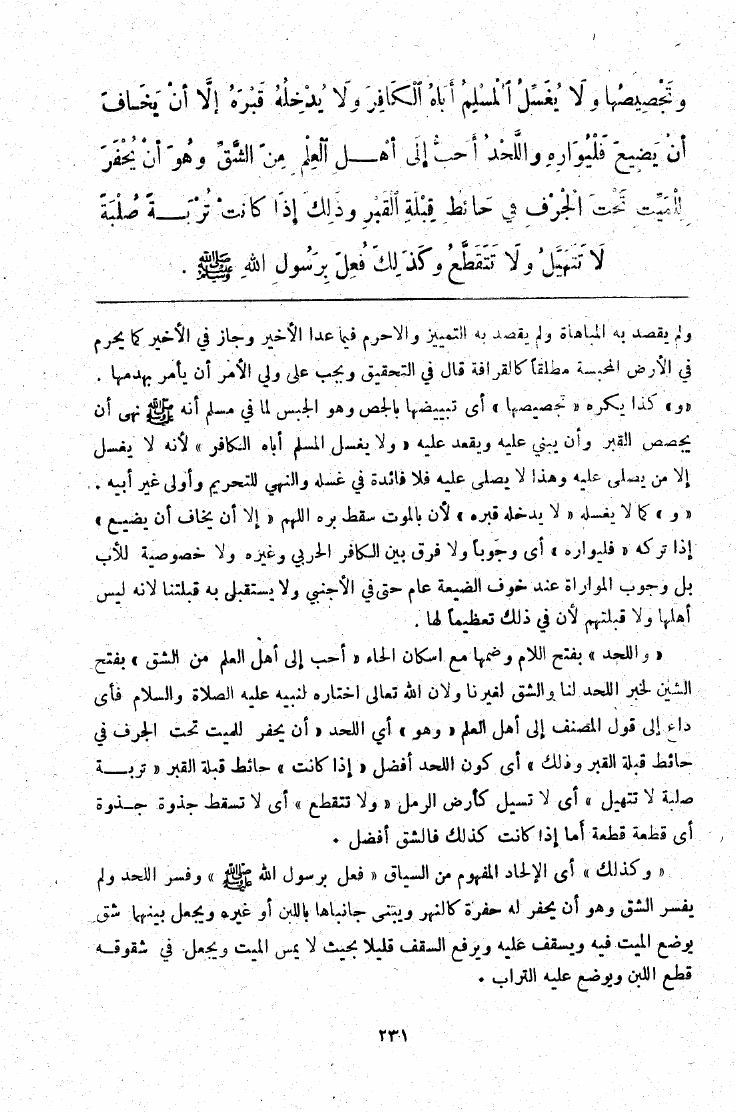 وَتَجْصِيصُهَا وَلَا يُغَسِّلُ ٱلْمُسْلِمُ أَبَاهُ ٱلْكَافِرَ وَلَا يُدْخِلُهُ قَبْرَهُ إِلَّا أَنْ يَخَافَ
أَنْ يَضِيعَ فَلْيُوَارِهِ وَاللَّحْدُ أَحَبُّ إِلَى أَهْلِ ٱلْعِلْمِ مِنَ الشَّقِّ وَهُوَ أَنْ يُحْفَرَ
لِلْمَيِّتِ تَحْتَ الْجُرْفِ فِي حَائِطِ قِبْلَةِ ٱلْقَبْرِ وَذَلِكَ إِذَا كَانَتْ تُرْبَةً صُلْبَةً
لَا تَتَهَيَّلُ وَلَا تَتَقَطَّعُ وَكَذَلِكَ فُعِلَ بِرَسُولِ اللهِ ﷺ .
ولم يقصد به المباهاة ولم يقصد به التمييز والاحرم فيما عدا الأخير وجاز في الأخير كما يحرم
في الأرض المحبسة مطلقاً كالقرافة قال في التحقيق ويجب على ولي الأمر أن يأمر بهدمها .
« و » كذا يكره « تجصيصها » أى تبييضها بالجص وهو الجبس لما في مسلم أنه ﷺ نهى أن
يجصص القبر وأن يبني عليه ويقعد عليه « ولا يغسل المسلم أباه الكافر » لأنه لا يغسل
إلا من يصلى عليه وهذا لا يصلى عليه فلا فائدة في غسله والنهي للتحريم وأولى غير أبيه .
« و » كما لا يغسله « لا يدخله قبره » لأن بالموت سقط بره اللهم « إلا أن يخاف أن يضيع »
إذا تركه « فليواره » أى وجوباً ولا فرق بين الكافر الحربي وغيره ولا خصوصية للأب
بل وجوب المواراة عند خوف الضيعة عام حتى في الأجنبي ولا يستقبل به قبلتنا لانه ليس
أهلها ولا قبلتهم لأن في ذلك تعظيماً لها .
« واللحد » بفتح اللام وضمها مع اسكان الحاء « أحب إلى أهل العلم من الشق » بفتح
الشين لخبر اللحد لنا والشق لغيرنا ولان الله تعالى اختاره لنبيه عليه الصلاة والسلام فأى
داع إلى قول المصنف إلى أهل العلم « وهو » أي اللحد « أن يحفر للميت تحت الجرف في
حائط قبلة القبر وذلك » أى كون اللحد أفضل « إذا كانت » حائط قبلة القبر « تربة
صلبة لا تتهيل » أى لا تسيل كأرض الرمل « ولا تتقطع » أى لا تسقط جذوة جذوة
أى قطعة قطعة أما إذا كانت كذلك فالشق أفضل .
« وكذلك » أى الإلحاد المفهوم من السياق « فعل برسول الله ﷺ » وفسر اللحد ولم
يفسر الشق وهو أن يحفر له حفرة كالنهر ويبنى جانباها باللبن أو غيره ويجعل بينهما شق
يوضع الميت فيه ويسقف عليه ويرفع السقف قليلا بحيث لا يمس الميت ويجعل في شقوقه
قطع اللبن ويوضع عليه التراب .
٢٣١